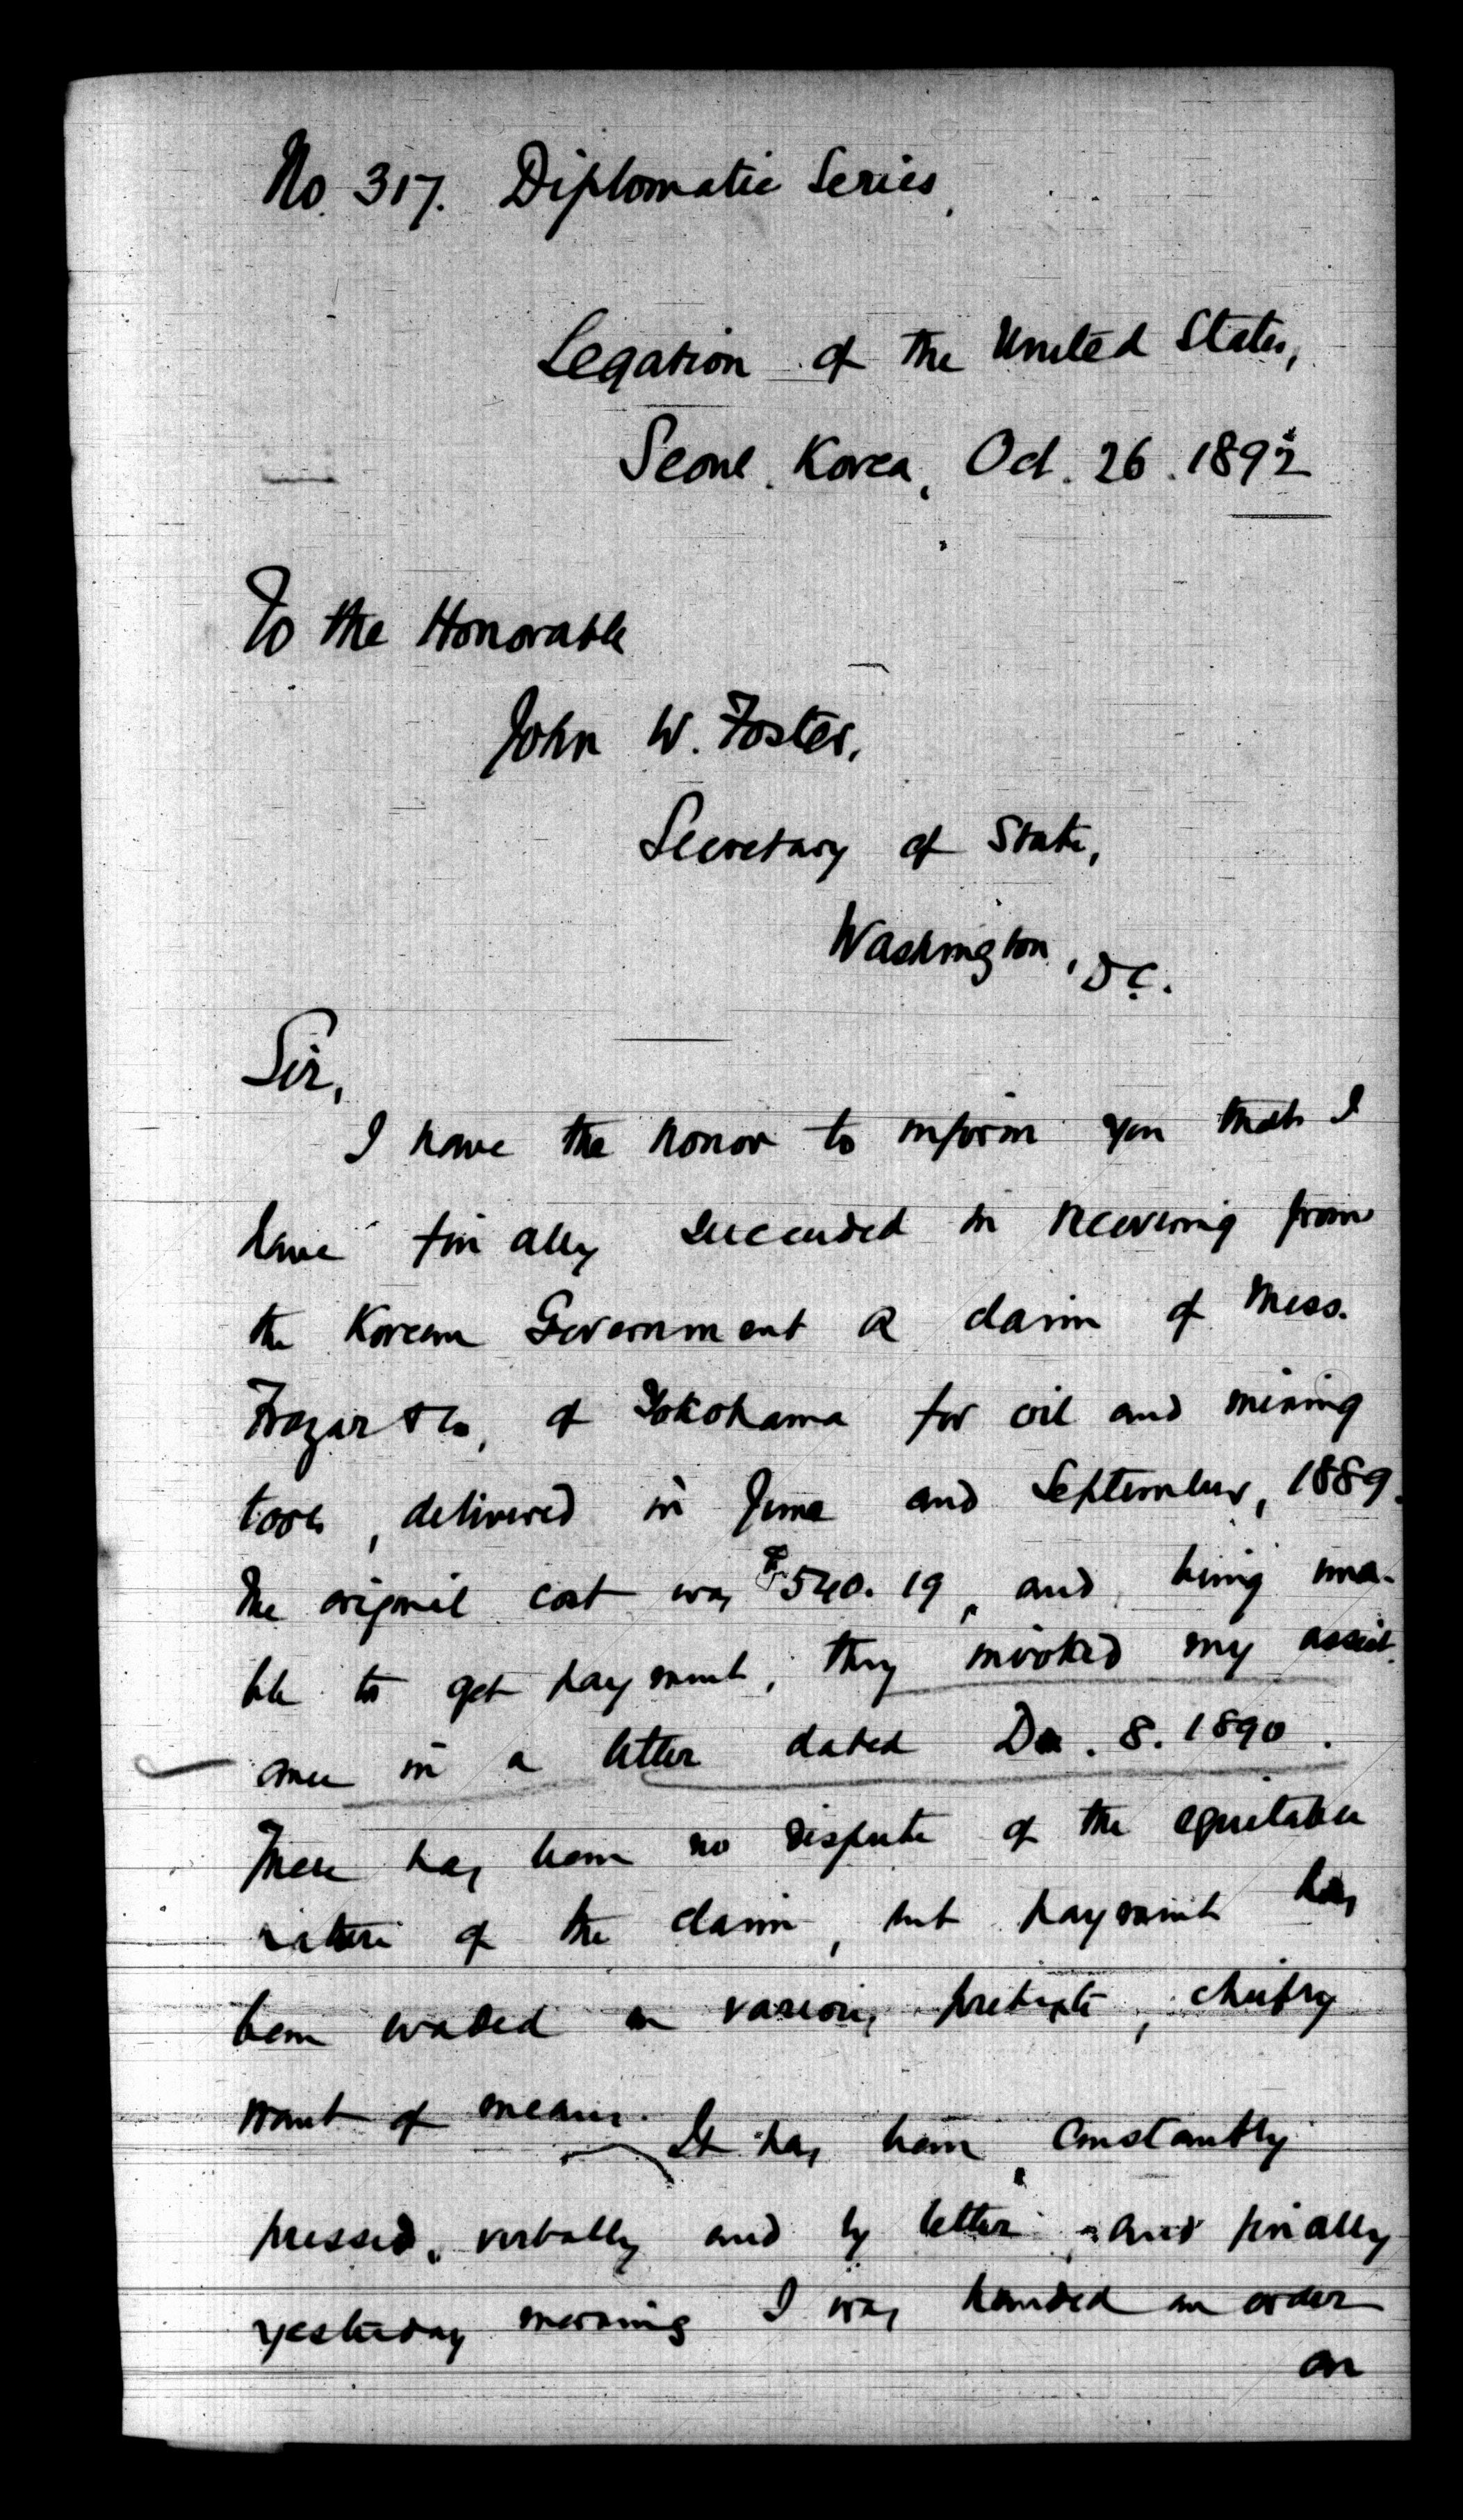 No. 317. Diplomatic Series.
Legation of the United States,
Seoul, Korea, Oct. 26. 1892
To the Honorable
John W. Foster,
Secretary of State,
Washington, D.C.
Sir,
I have the honor to inform you that I
have finally succeeded in recovering from
the Korean Government a claim of Mess.
Frazar & Co, of Yokohama for oil and mining
tools, delivered in June and September, 1889.
The original cost was $540.19, and, being una-
ble to get payment, they invoked my assist-
ance in a letter dated Dec. 8. 1890.
There has been no dispute of the equitable
nature of the claim, but payment has
been evaded on various pretexts, chiefly
want of means. It has been constantly
pressed, verbally and by letter, and finally
yesterday morning I was handed an order
on